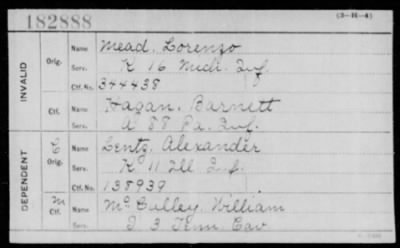 182888
(3-H-4)
INVALID
Orig. Name Mead, Lorenzo
Serv. K 16 Mich. Inf.
Ctf. No. 344438
Ctf. Name Hagan, Barnett
Serv. A 88 Pa. Inf.
DEPENDENT
C Orig. Name Lentz, Alexander
Serv. K 11 Ill Inf.
Ctf. No. 138939
M Ctf. Name McCulley, William
Serv. I 3 Tenn Cav